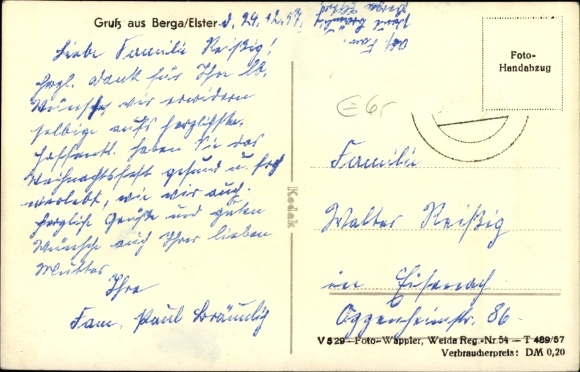 Gruß aus Berga/Elster d. 24.12.57.
Liebe Familie Reißig!
Herzl. Dank für Ihre lb.
Wünsche, wir erwidern
selbige aufs herzlichste.
Hoffentl. haben Sie das
Weihnachtsfest gesund u. froh
verlebt, wie wir auch.
Herzliche Grüße und guten
Wünsche auch Ihrer lieben
Mutter
Ihre
Fam. Paul Bräunlig
Abs. Fam.
Paul Bräunlig
Berga
Kodak
Foto-
Handabzug
E61
Familie
Walter Reißig
in Eisenach
Oggenheimstr. 86
V 529 - Foto-Wappler, Weida Reg.-Nr. 54 - T 489/57
Verbraucherpreis: DM 0,20